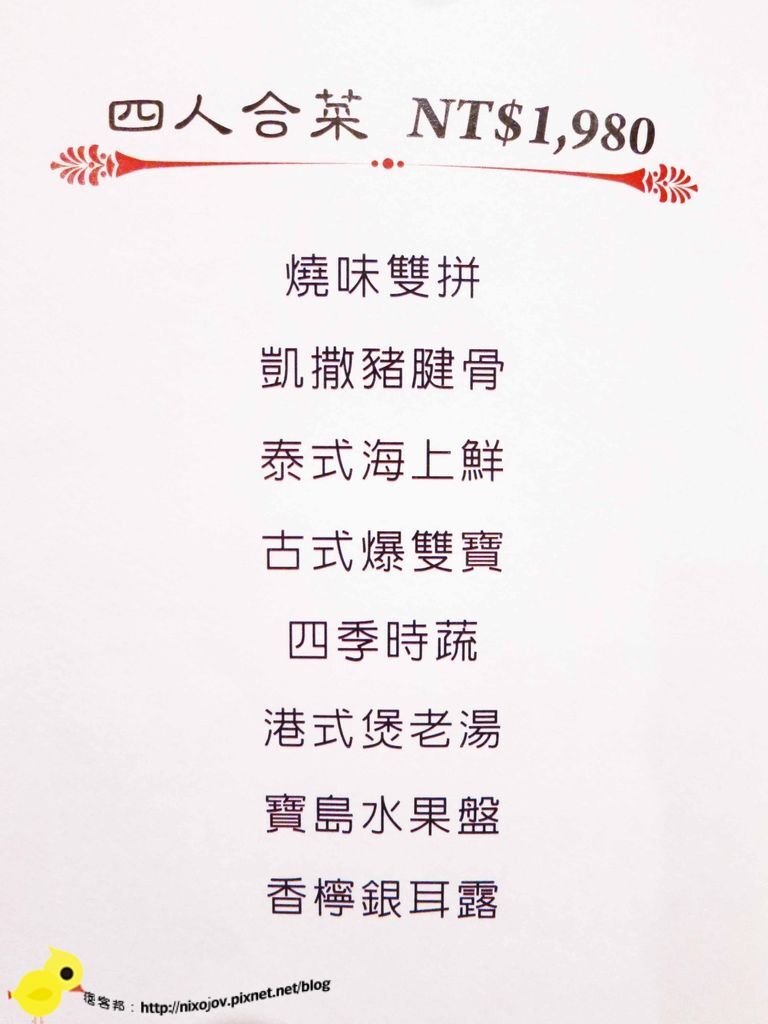 四人合菜 NT$1,980
燒味雙拼
凱撒豬腱骨
泰式海上鮮
古式爆雙寶
四季時蔬
港式煲老湯
寶島水果盤
香檸銀耳露
痞客邦：http://nixojov.pixnet.net/blog